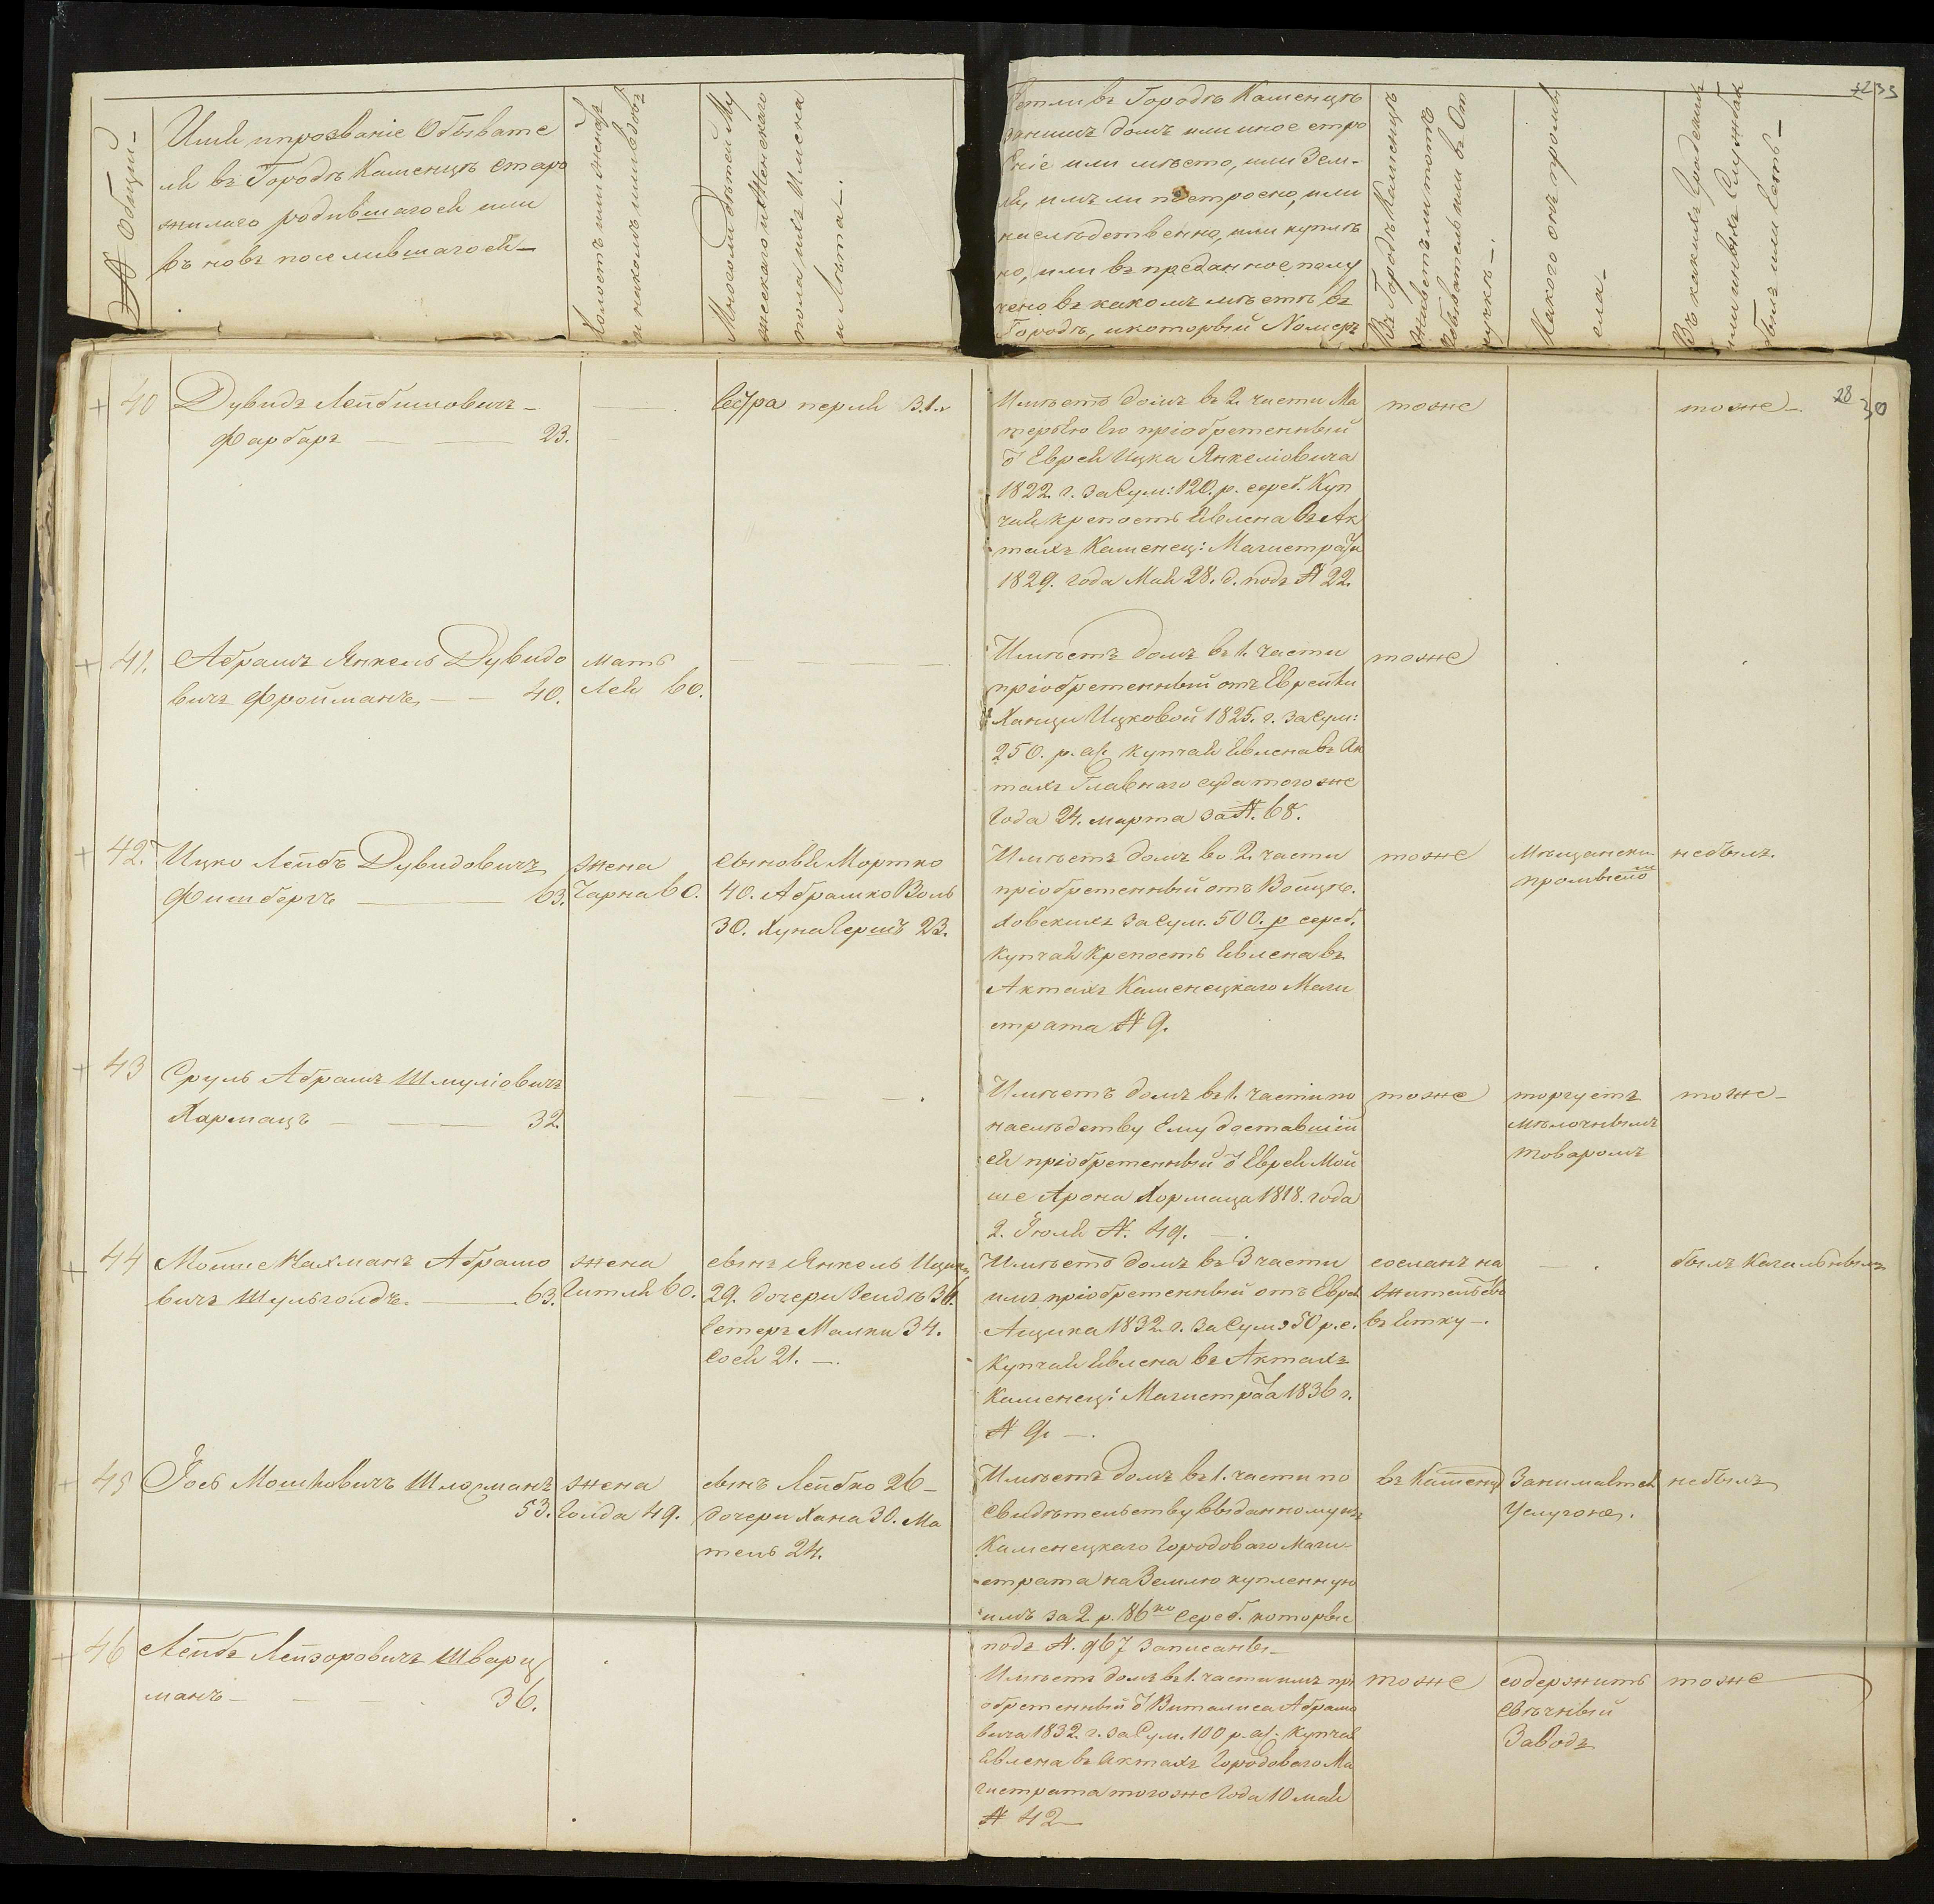 № Общій —
Имя и прозваніе Обывате
ля въ Городѣ Каменцѣ старо
жилаго родившагося или
въ новѣ поселившагося —
Холостъ или женатъ
и на комъ или вдовъ
Много ли дѣтей Му
жескаго и Женскаго
пола и ихъ Имена
и Лѣта —.
Естли въ Городѣ Каменцѣ
за нимъ домъ или иное стро
еніе или мѣсто, или Зем-
ля, имъ ли построено, или
наслѣдственно, или куплѣ
но, или въ преданное полу
чено въ какомъ мѣстѣ въ
Городѣ, и который Номеръ
Въ Городѣ Каменцѣ
живетъ ли тотъ
Обыватель или въ От
лучкѣ —.
Какого онъ промы
сла —
Въ какихъ Гражданских
или иныхъ Службах
былъ или есть —
235
28
30
40
Дувидъ Лейбишовичъ —
Фарбаръ — 23.
Сестра перля 31.
Имѣетъ домъ въ 2. части Ма
терью Его пріобретенный
Еврея Ицка Янкеліовича
1822. г. за Сум: 120. р. сереб. Куп
чая крепость Явлена въ Ак
тахъ Каменец: Магистрата
1829. года Мая 28. д. подъ № 22.
тоже
тоже —
41.
Абрамъ Янкель Дувидо
вичъ Фройманъ — 40.
мать
Лея 60.
Имѣетъ домъ въ 1. части
пріобретенный отъ Еврейки
Ханци Ицковой 1825. г. за Сум:
250. р. ас. купчая Явлена въ Ак
тахъ Главнаго суда того же
Года 24. марта за №. 68.
тоже
42.
Ицко Лейбъ Дувидовичъ
Фишбергъ — 63.
жена
Чарна 60.
сыновья Мортко
40. Абрамко Воль
30. Хуна Гершъ 23.
Имѣетъ домъ во 2. части
пріобретенный отъ Войцѣ-
ховскихъ за Сум. 500. р сереб.
купчая Крепость Явлена въ
Актахъ Каменецкаго Маги
страта № 9.
тоже
Мещански
промысло
небылъ.
43
Сруль Абрамъ Шмуліовичъ
Хармацъ — 32.
Имѣетъ домъ въ 1. части по
наслѣдству Ему доставшій
ся пріобретенный Еврея Мой
ше Арона Хормаца 1818. года
2. Іюля №. 49. —.
тоже
торгуетъ
мѣлочнымъ
товаромъ
тоже —
44
Мойше Нахманъ Абрамо
вичъ Шульголдъ. — 63.
жена
Гитля 60.
сынъ Янкель Ицико
29. дочери Гендѣ 36.
Естеръ Малки 34.
Сося 21. —.
Имѣетъ домъ въ 3 части
имъ пріобретенный отъ Еврея
Ащика 1832. г. за Сумъ 50 р. с.
Купчая Явлена въ Актахъ
Каменец: Магистрата 1836 г.
№ 9. —.
сосланъ на
жительство
въ —.
былъ Кагальнымъ
45
Іось Мошковичъ Шлозманъ
53.
жена
Голда 49.
сынъ Лейбко 26 —
дочери Хана 30. Ма
тель 24.
Имѣетъ домъ въ 1. части по
Свидѣтельству выданному изъ
Каменецкаго Городоваго Маги-
страта на Землю купленную
имъ за 2. р. 86 ко сереб. которые
подъ №. 967 записаны —
въ Каменцѣ
Занимается
Услугою.
небылъ
46
Лейбъ Лейзоровичъ Шварц
манъ — 36.
Имѣетъ домъ въ 1. части имъ прі
обретенный Виталиса Абрамо
вича 1832. г. за Сум. 100 р. ас. купчая
Явлена въ Актахъ Городоваго Ма
гистрата того же Года 10 мая
№ 42 —
тоже
содержитъ
Свѣчный
Заводъ
тоже